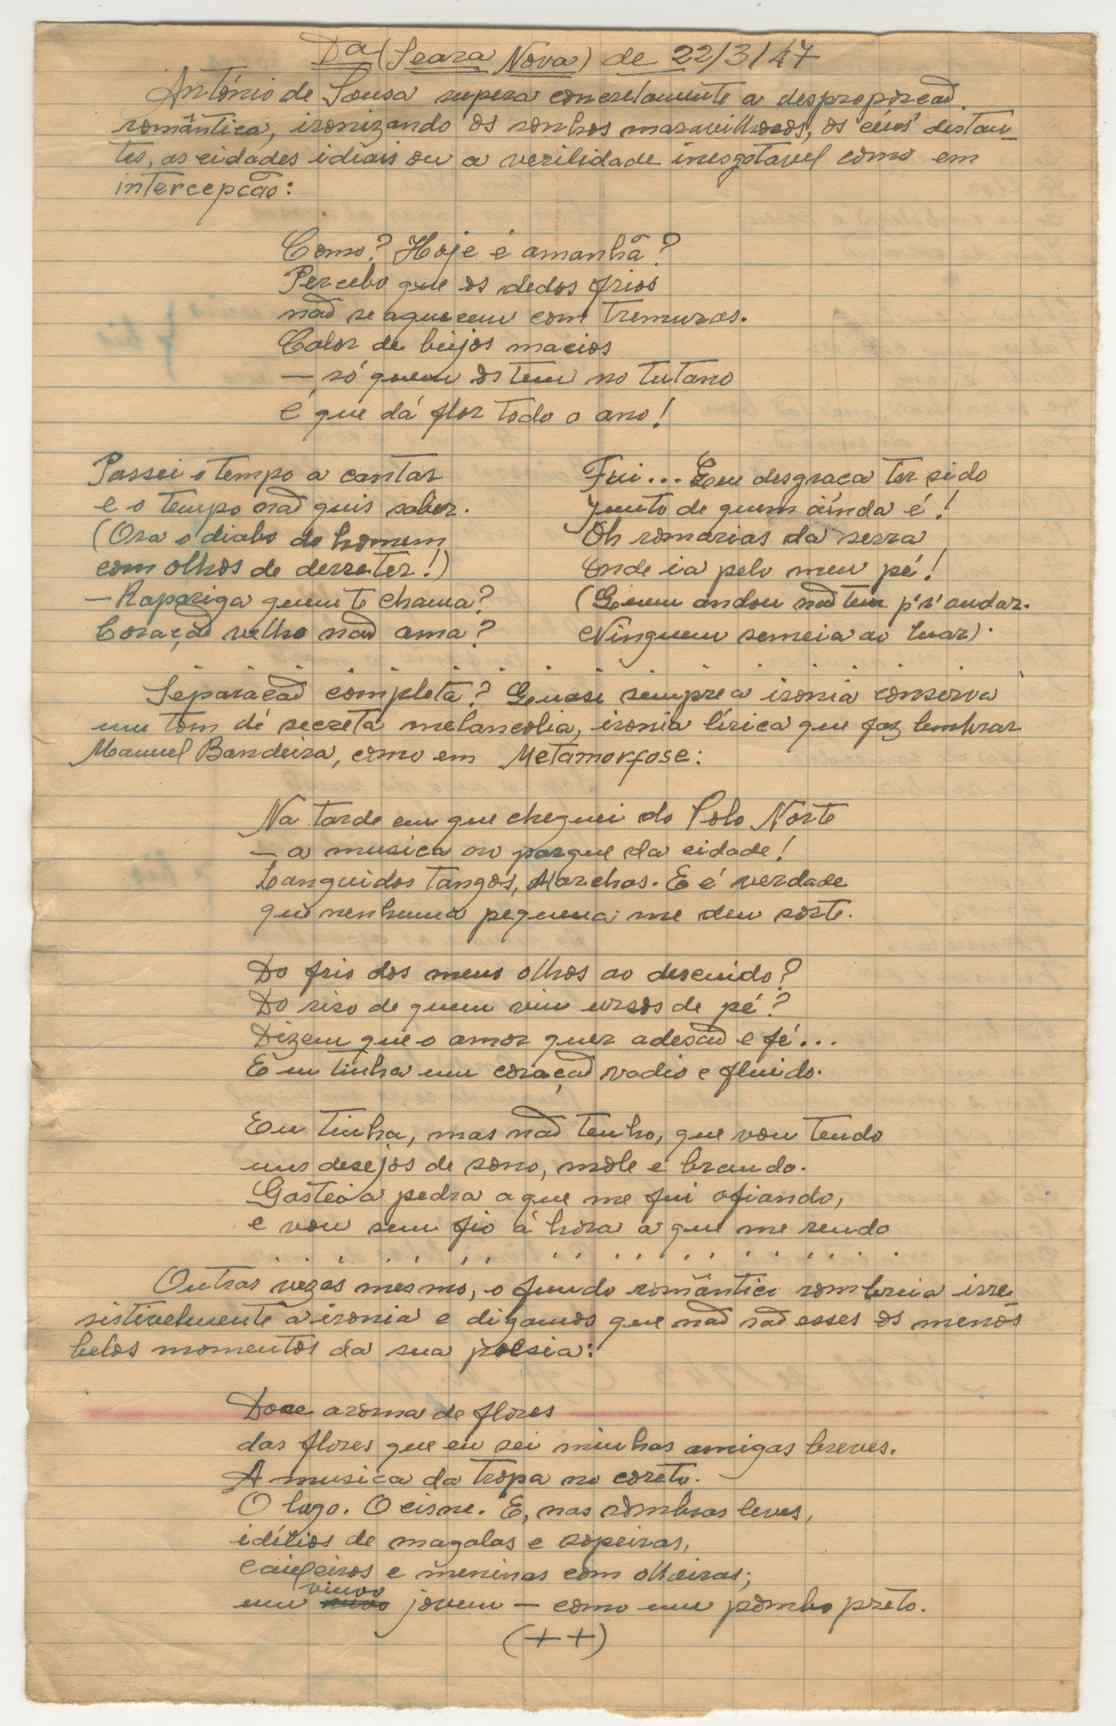 Da (Seara Nova) de 22/3/47
António de Sousa supera concretamente a desproporção
romântica, ironizando os sonhos maravilhosos, os céus distan-
tes, as cidades idiais ou a verilidade inesgotavel como em
intercepção:
Como? Hoje é amanhã?
Percebo que os dedos frios
não se aquecem com tremuras.
Calor de beijos macios
— só quem os tem no tutano
é que dá flor todo o ano!
Passei o tempo a cantar
e o tempo não quis saber.
(Ora o diabo do homem
com olhos de derreter!)
— Rapariga quem te chama?
Coração velho não ama?
Fui... Que desgraça ter sido
junto de quem aínda é!
Oh romarias da serra
Onde ia pelo meu pé!
(Quem andou não tem p'r'andar.
Ninguem semeia ao luar).
. . . . . . . . . . . . . .
Separação completa? Quasi sempre a ironia conserva
um tom de secreta melancolia, ironia lírica que faz lembrar
Manuel Bandeira, como em Metamorfose:
Na tarde em que cheguei do Polo Norte
— a musica no parque da cidade!
Languidos tangos, Marchas. E é verdade
que nenhuma pequena me deu sorte.
Do frio dos meus olhos ao descuido?
Do riso de quem viu ursos de pé?
Dizem que o amor quer adesão e fé...
E eu tinha um coração vadio e fluido.
Eu tinha, mas não tenho, que vou tendo
uns desejos de sono, mole e brando.
Gastei a pedra a que me fui afiando,
e vou sem fio à hora a que me rendo
. . . . . . . . . . . . . . . . .
Outras vezes mesmo, o fundo romântico sombreia irre-
sistivelmente a ironia e digamos que não são esses os menos
belos momentos da sua poesia:
Doce aroma de flores
das flores que eu sei minhas amigas breves.
A musica da tropa no coreto.
O lago. O cisne. E, nas sombras leves,
idílios de magalas e sopeiras,
caixeiros e meninas com olheiras;
um viuvo jovem — como um pombo preto.
(++)